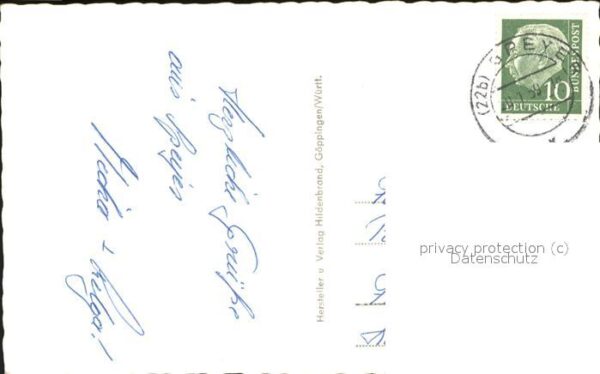 Herzliche Grüße
aus Speyer
Maria + Helga!
Hersteller u. Verlag Hildenbrand, Göppingen/Württ.
(22b) SPEYE
10
DEUTSCHE
BUNDESPOST
privacy protection (c)
Datenschutz